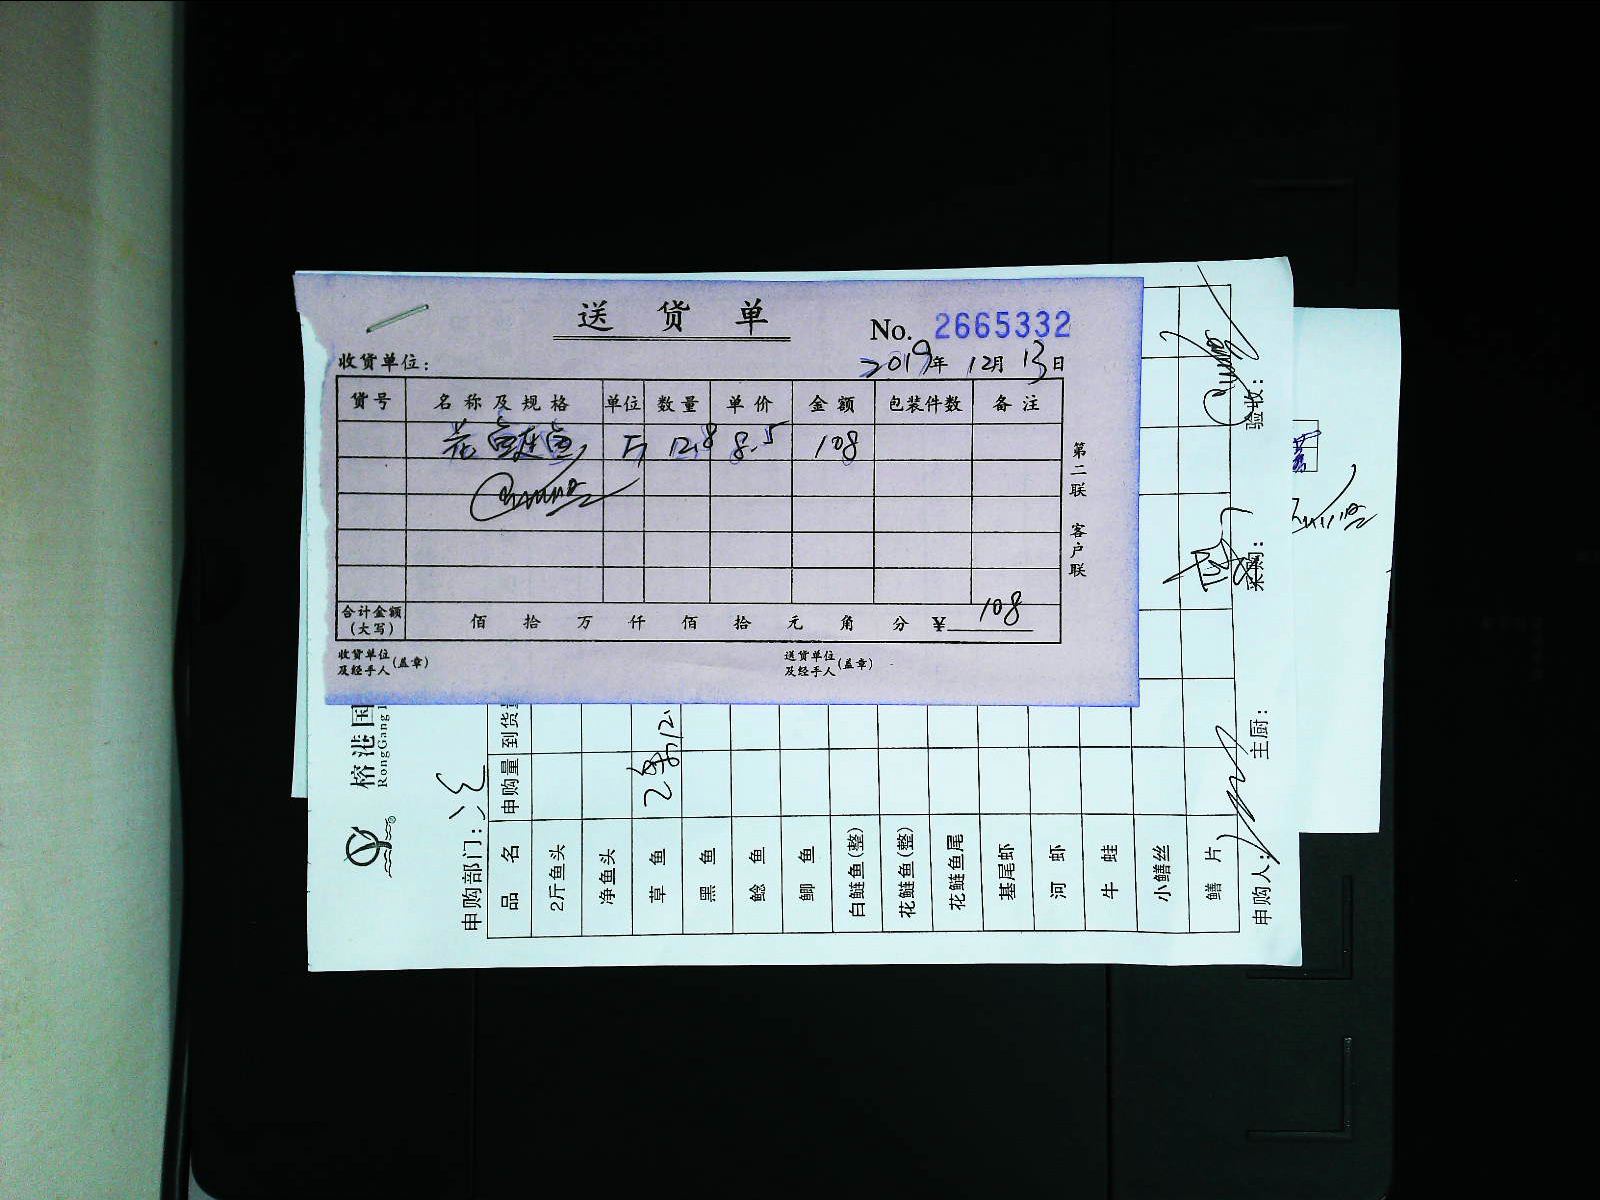 送货单
No. 2665332
收货单位：
2019年 12月 13日
货号 名称及规格 单位 数量 单价 金额 包装件数 备注
花鲢鱼 斤 12.8 8.5 108
合计金额(大写) 佰 拾 万 仟 佰 拾 元 角 分 ¥ 108
收货单位及经手人(盖章) 送货单位及经手人(盖章)
第二联 客户联
榕港国
RongGang I
申购部门：
品名 申购量 到货量
2斤鱼头
净鱼头
草鱼 2条 12.
黑鱼
鲶鱼
鲫鱼
白鲢鱼(整)
花鲢鱼(整)
花鲢鱼尾
基尾虾
河虾
牛蛙
小鳝丝
鳝片
申购人： 主厨： 采购： 验收：